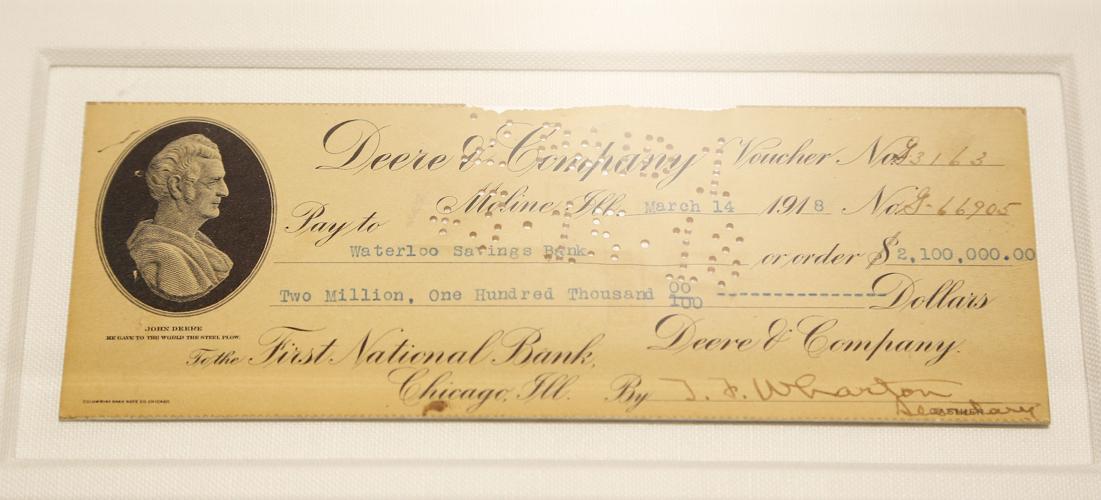 Deere & Company Voucher No. G3163
Moline, Ill. March 14 1918 No. G-66905
Pay to
Waterloo Savings Bank or order $2,100,000.00
Two Million, One Hundred Thousand 00/100 ---------------- Dollars
JOHN DEERE
HE GAVE TO THE WORLD THE STEEL PLOW.
To the First National Bank, Deere & Company.
Chicago, Ill. By T. F. Wharton
Secretary
CASHIER
COLUMBIAN BANK NOTE CO. CHICAGO.